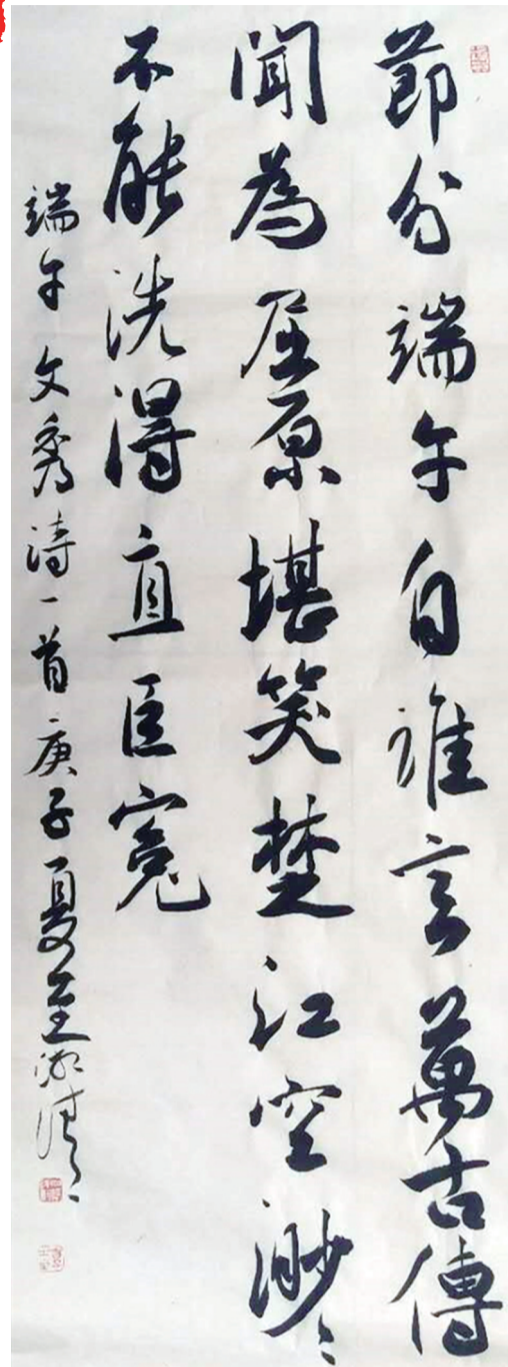 節分端午自誰言萬古傳
聞為屈原堪笑楚江空渺〻
不能洗得直臣寃
端午文秀詩一首庚子夏至